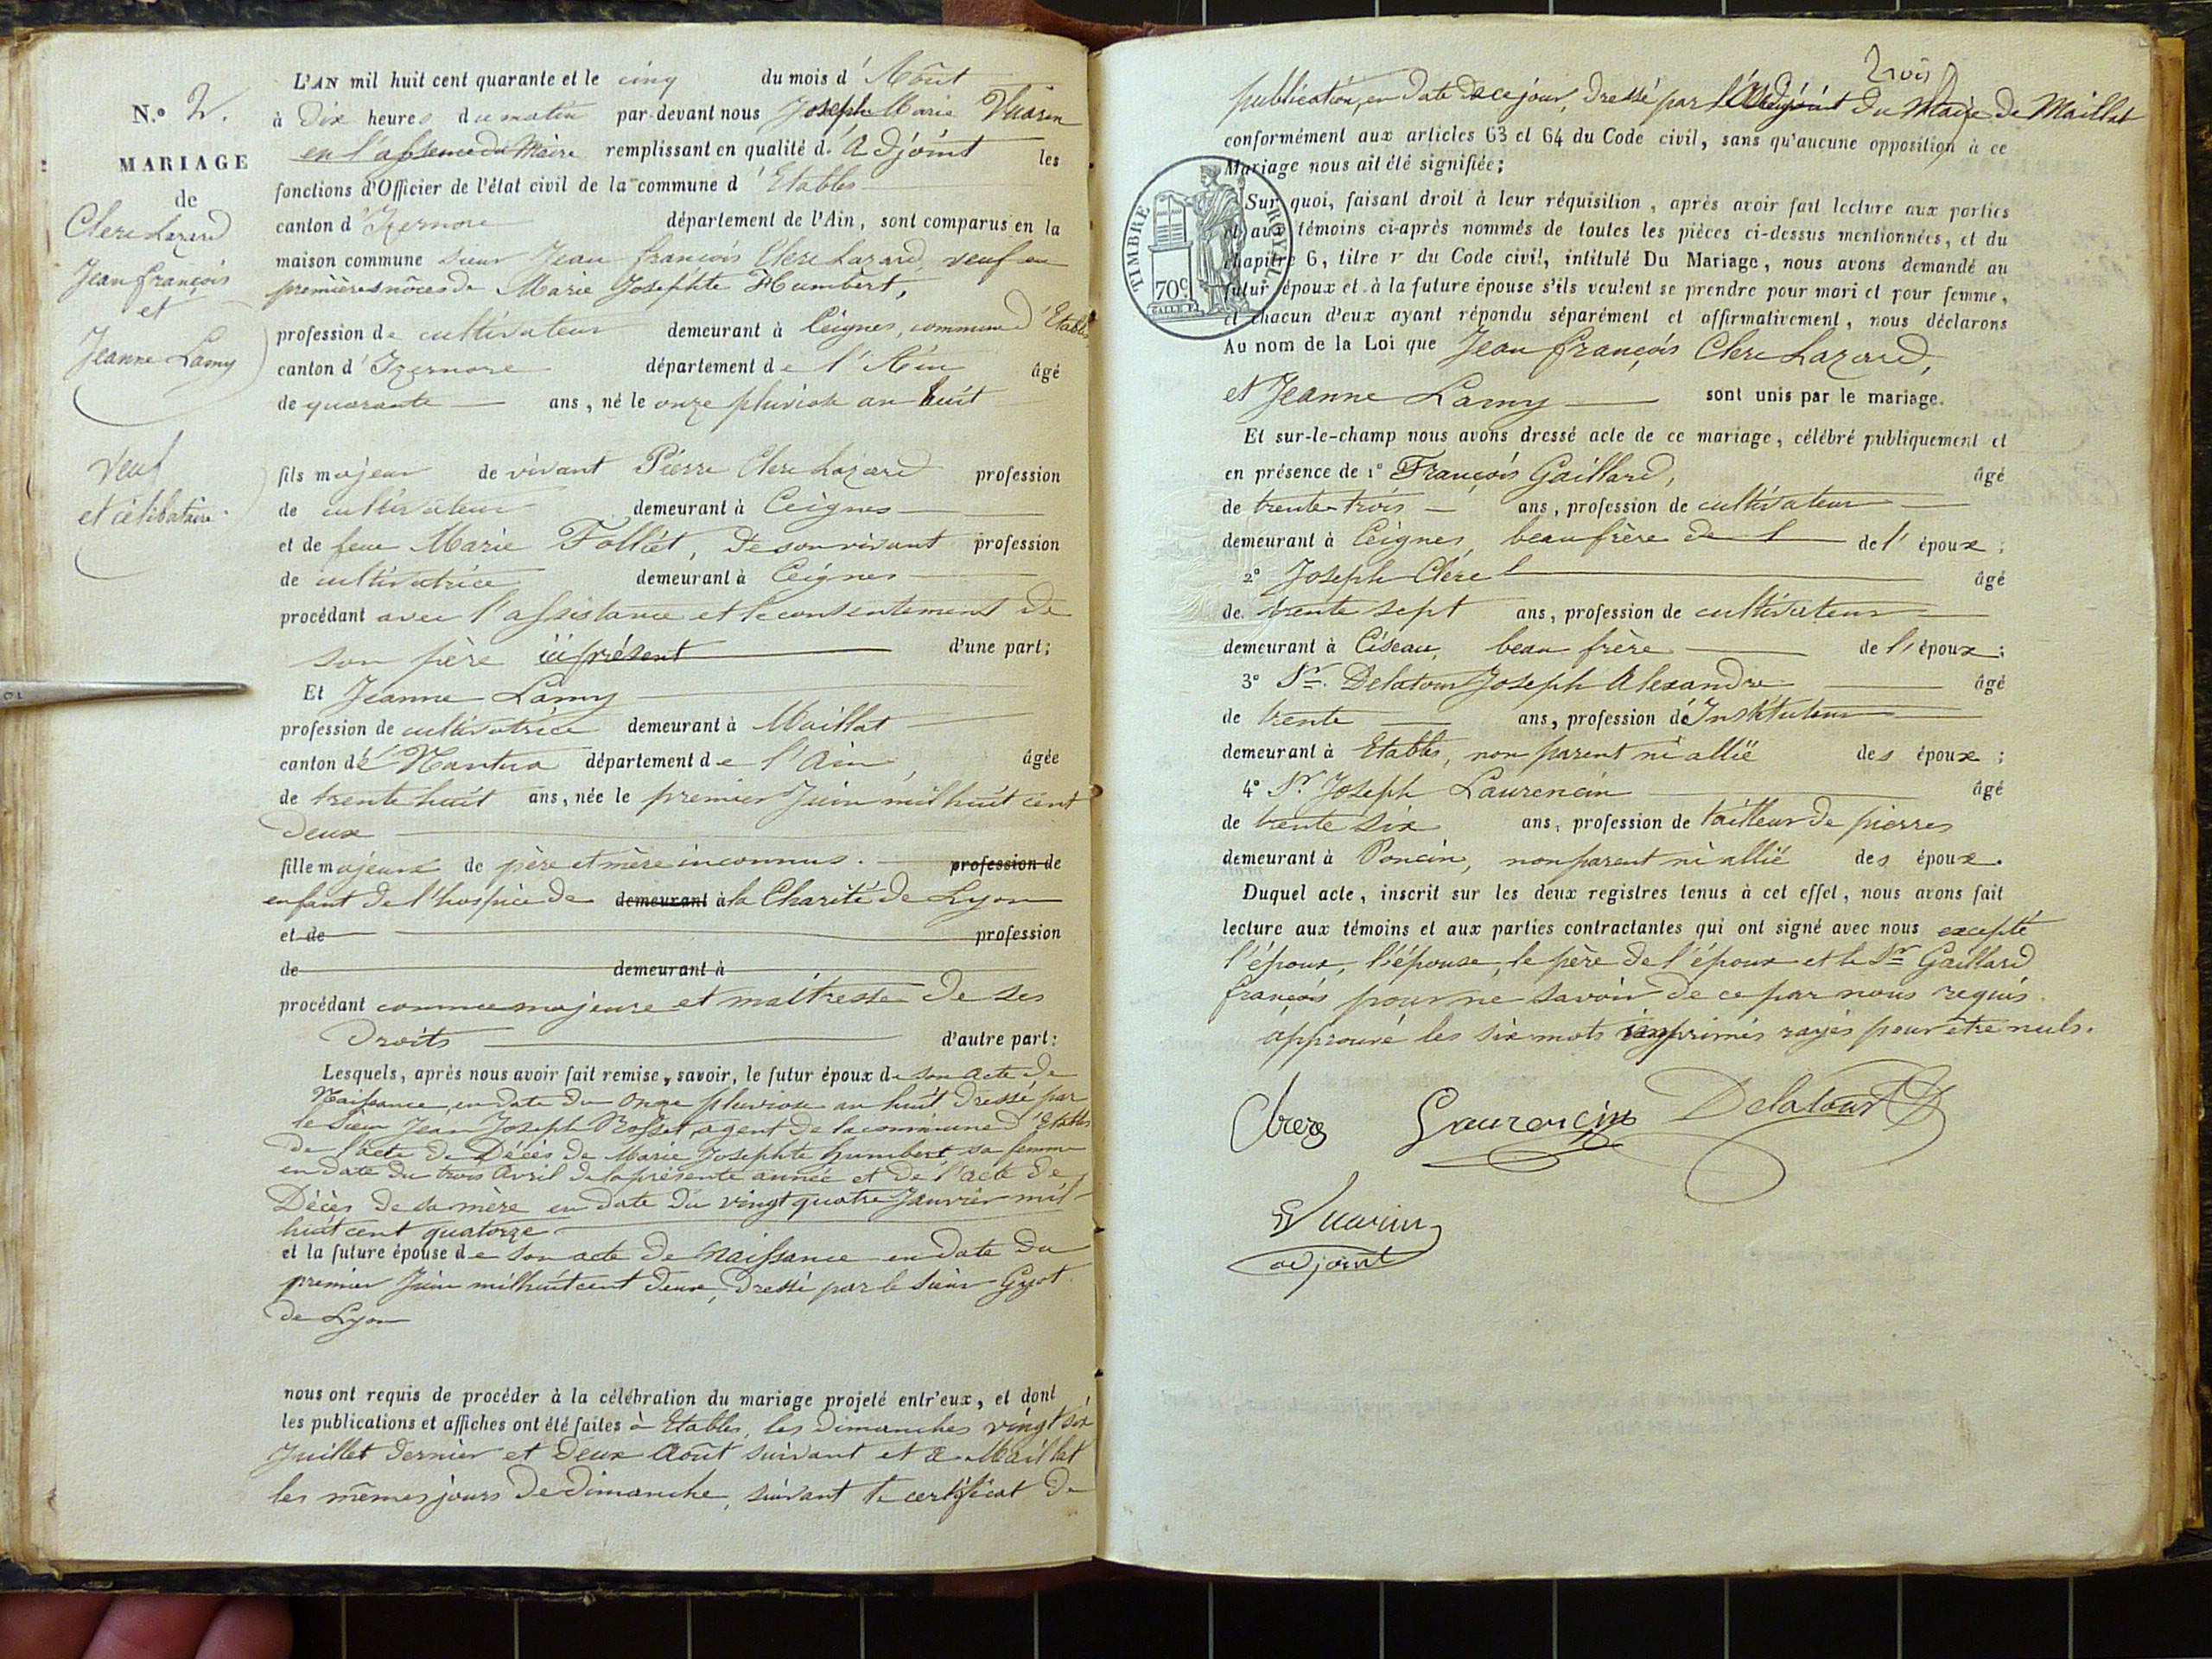 N.º 2.
MARIAGE
de
Clerc Lazard
Jean françois
et
Jeanne Lamy
veuf
et célibataire
L'AN mil huit cent quarante et le cinq du mois d'Août
à dix heures du matin par-devant nous Joseph Marie Vuarin
en l'absence du Maire remplissant en qualité d'Adjoint les
fonctions d'Officier de l'état civil de la commune d'Etables
canton d'Izernore département de l'Ain, sont comparus en la
maison commune sieur Jean françois Clerc Lazard, veuf en
premières nôces de Marie Josephte Humbert,
profession de cultivateur demeurant à Ceignes, commune d'Etables
canton d'Izernore département de l'Ain âgé
de quarante ans, né le onze pluviose an huit
fils majeur de vivant Pierre Clerc Lazard profession
de cultivateur demeurant à Ceignes
et de feue Marie Folliet, de son vivant profession
de cultivatrice demeurant à Ceignes
procédant avec l'assistance et le consentement de
son père ici présent d'une part;
Et Jeanne Lamy
profession de cultivatrice demeurant à Maillat
canton de Nantua département de l'Ain, âgée
de trente huit ans, née le premier Juin mil huit cent
deux
fille majeure de père et mère inconnus. profession de
enfant de l'hospice de demeurant à la Charité de Lyon
et de profession
de demeurant à
procédant comme majeure et maîtresse de ses
droits d'autre part:
Lesquels, après nous avoir fait remise, savoir, le futur époux de son acte de
Naissance, en date du onze pluviose an huit, dressé par
le sieur Jean Joseph Rosset, agent de la commune d'Etables
de l'acte de Décès de Marie Josephte humbert sa femme
en date du trois Avril de la présente année et de l'acte de
Décès de sa mère en date du vingt quatre Janvier mil
huit cent quatorze
et la future épouse de son acte de Naissance en date du
premier Juin mil huit cent deux, dressé par le sieur Guyot
de Lyon
nous ont requis de procéder à la célébration du mariage projeté entr'eux, et dont
les publications et affiches ont été faites à Etables, les dimanches vingt six
Juillet dernier et deux Août suivant et à Maillat
les mêmes jours de dimanche, suivant le certificat de
trois
publication, en date de ce jour, dressé par l'Adjoint du Maire de Maillat
conformément aux articles 63 et 64 du Code civil, sans qu'aucune opposition à ce
Mariage nous ait été signifiée;
TIMBRE ROYAL
70c.
Sur quoi, faisant droit à leur réquisition, après avoir fait lecture aux parties
et aux témoins ci-après nommés de toutes les pièces ci-dessus mentionnées, et du
chapitre 6, titre v du Code civil, intitulé Du Mariage, nous avons demandé au
futur époux et à la future épouse s'ils veulent se prendre pour mari et pour femme,
et chacun d'eux ayant répondu séparément et affirmativement, nous déclarons
Au nom de la Loi que Jean françois Clerc Lazard,
et Jeanne Lamy sont unis par le mariage.
Et sur-le-champ nous avons dressé acte de ce mariage, célébré publiquement et
en présence de 1º François Gaillard, âgé
de trente-trois ans, profession de cultivateur
demeurant à Ceignes, beau frère de l'époux;
2º Joseph Clerc âgé
de trente sept ans, profession de cultivateur
demeurant à Ciseau, beau frère de l'époux;
3º Sr. Delatour Joseph Alexandre âgé
de trente ans, profession d'Instituteur
demeurant à Etables, non parent ni allié des époux;
4º Sr. Joseph Laurencin âgé
de trente six ans, profession de tailleur de pierres
demeurant à Poncin, non parent ni allié des époux.
Duquel acte, inscrit sur les deux registres tenus à cet effet, nous avons fait
lecture aux témoins et aux parties contractantes qui ont signé avec nous excepté
l'époux, l'épouse, le père de l'époux et le Sr Gaillard
françois pour ne savoir de ce par nous requis
approuvé les six mots imprimés rayés pour être nuls.
Clerc Laurencin Delatour
Vuarin
adjoint